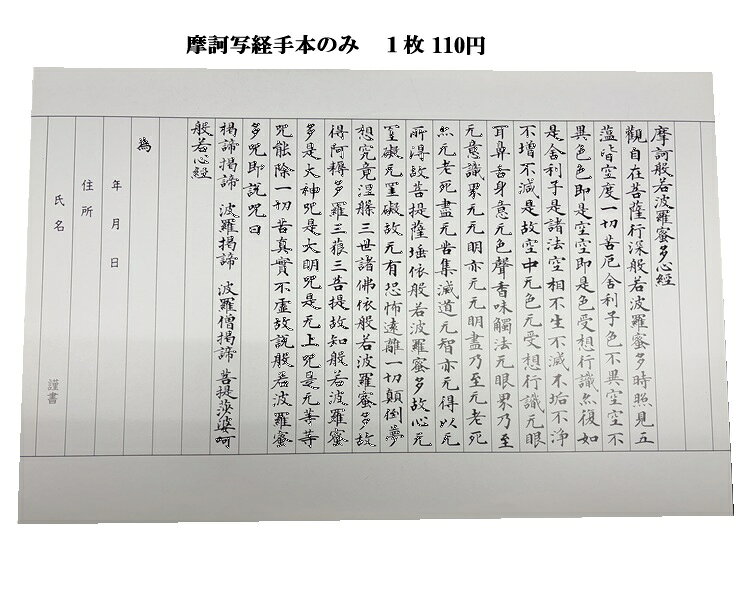 摩訶写経手本のみ　１枚 110円
摩訶般若波羅蜜多心経
觀自在菩薩行深般若波羅蜜多時照見五
蘊皆空度一切苦厄舍利子色不異空空不
異色色即是空空即是色受想行識亦復如
是舍利子是諸法空相不生不滅不垢不浄
不増不減是故空中无色无受想行識无眼
耳鼻舌身意无色聲香味觸法无眼界乃至
无意識界无无明亦无无明盡乃至无老死
亦无老死盡无苦集滅道无智亦无得以无
所淂故菩提薩埵依般若波羅蜜多故心无
罣礙无罣礙故无有恐怖遠離一切顛倒夢
想究竟涅槃三世諸佛依般若波羅蜜多故
得阿耨多羅三藐三菩提故知般若波羅蜜
多是大神咒是大明咒是无上咒是无等等
咒能除一切苦真實不虚故説般若波羅蜜
多咒即説咒曰
揭諦揭諦 波羅揭諦 波羅僧揭諦 菩提莎婆呵
般若心経
為
年 月 日
住所
氏名 謹書